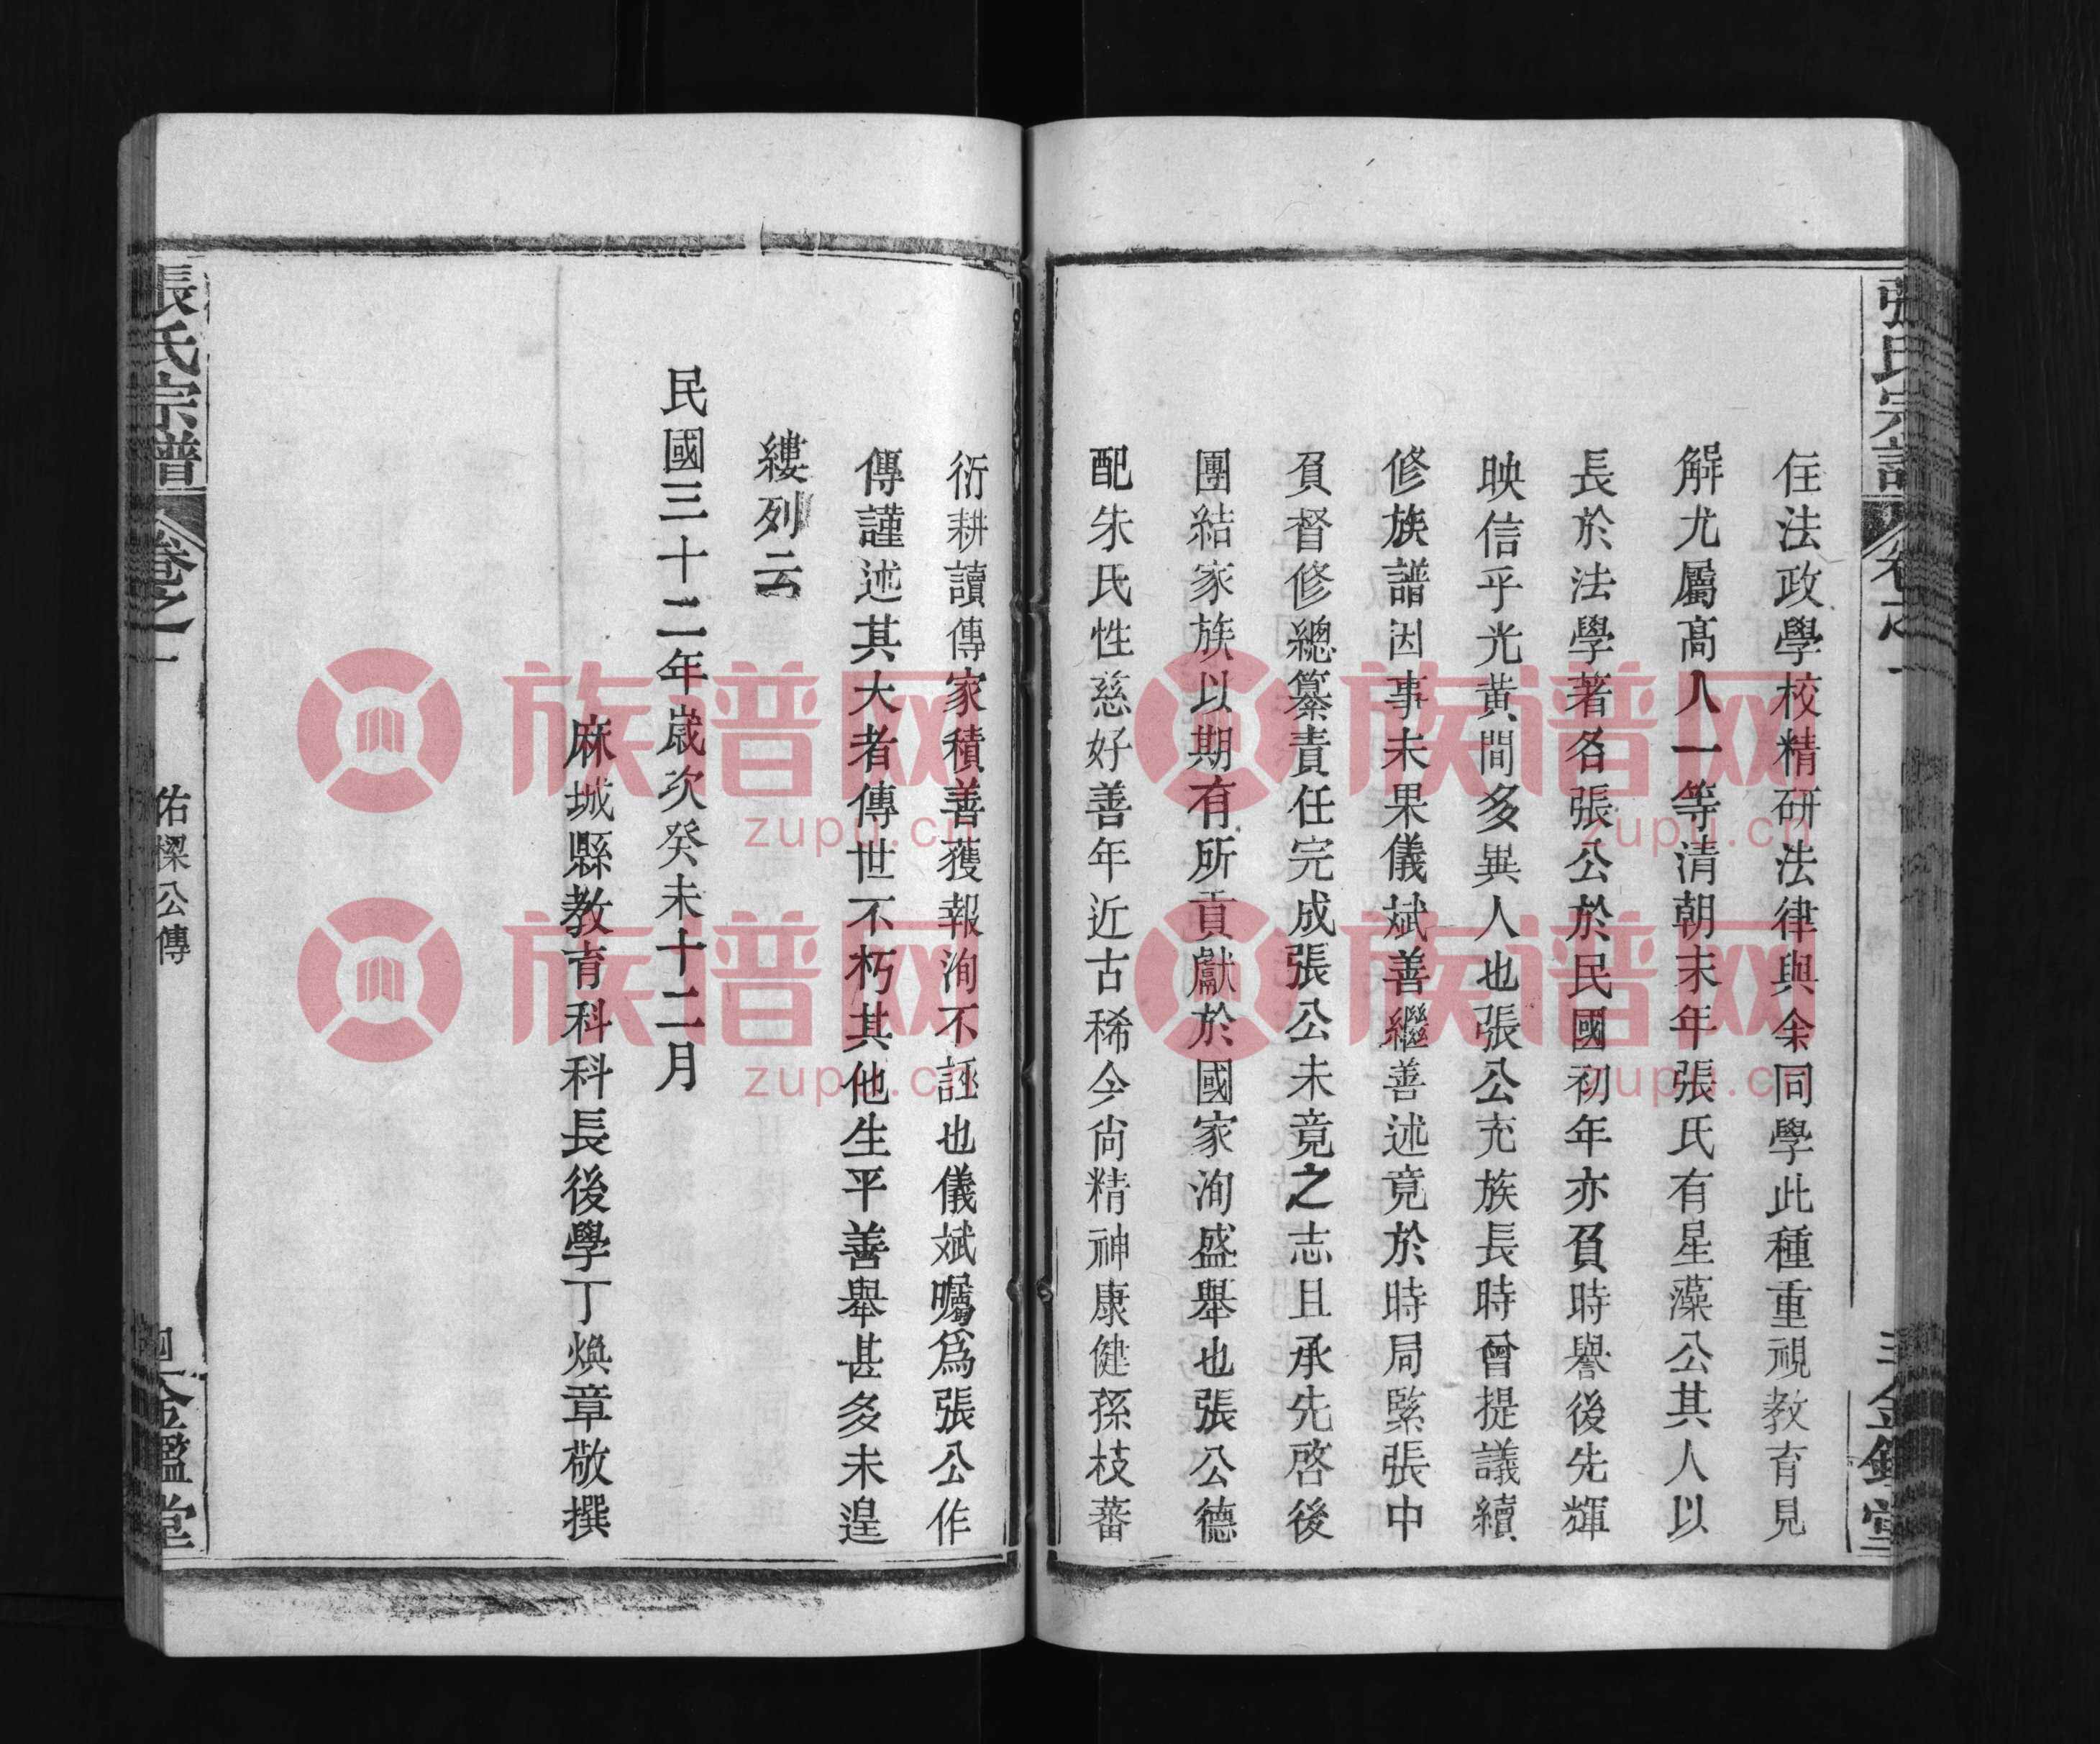 張氏宗譜
卷之一
金鑑堂
住法政學校精研法律與余同學此種重視教育見
解尤屬高人一等清朝末年張氏有星藻公其人以
長於法學著名張公於民國初年亦負時譽後先輝
映信乎光黄間多異人也張公充族長時曾提議續
修族譜因事未果儀斌善繼善述竟於時局緊張中
負督修總纂責任完成張公未竟之志且承先啓後
團結家族以期有所貢獻於國家洵盛舉也張公德
配朱氏性慈好善年近古稀今尚精神康健孫枝蕃
衍耕讀傳家積善獲報洵不誣也儀斌囑為張公作
傳謹述其大者傳世不朽其他生平善舉甚多未遑
縷列云
民國三十二年歲次癸未十二月
麻城縣教育科科長後學丁煥章敬撰
張氏宗譜
卷之一
佑樑公傳
四
金鑑堂
族谱网
zupu.cn
族谱网
zupu.cn
族谱网
zupu.cn
族谱网
zupu.cn